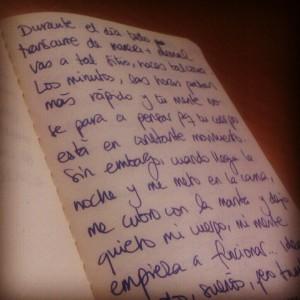 Durante el día todo
transcurre de manera + normal
vas a tal sitio, haces tal cosa
Los minutos, las horas pasan
más rápido y tu mente no
se para a pensar pq tu cuerpo
está en constante movimiento.
Sin embargo, cuando llega la
noche y me meto en la cama,
me cubro con la manta y dejo
quieto mi cuerpo, mi mente
empieza a funcionar...
sueño, pero